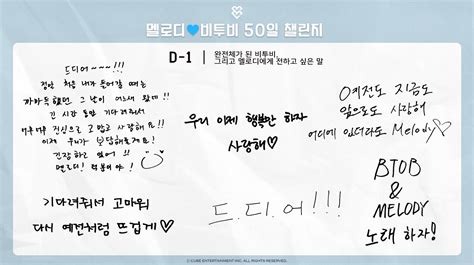 멜로디💙비투비 50일 챌린지
D-1
완전체가 된 비투비,
그리고 멜로디에게 전하고 싶은 말
드디어~~~!!!
처음 내가 들어갈 때는
까마득했던 그 날이 어느새 왔네!!
긴 시간 동안 기다려줘서
진심으로 고맙고 사랑해요!!
이제 우리가 보답해줄게요!
긴장하고 있어!!
멜로디! 덕분이야!
우리 이제 행복만 하자
사랑해♡
예전도 지금도
앞으로도 사랑해
어디에 있더라도 Melody♡
기다려줘서 고마워
다시 예전처럼 뜨겁게♡
드.디.어!!!
BTOB
&
MELODY
노래 하자!
ⓒ CUBE ENTERTAINMENT INC. ALL RIGHTS RESERVED.